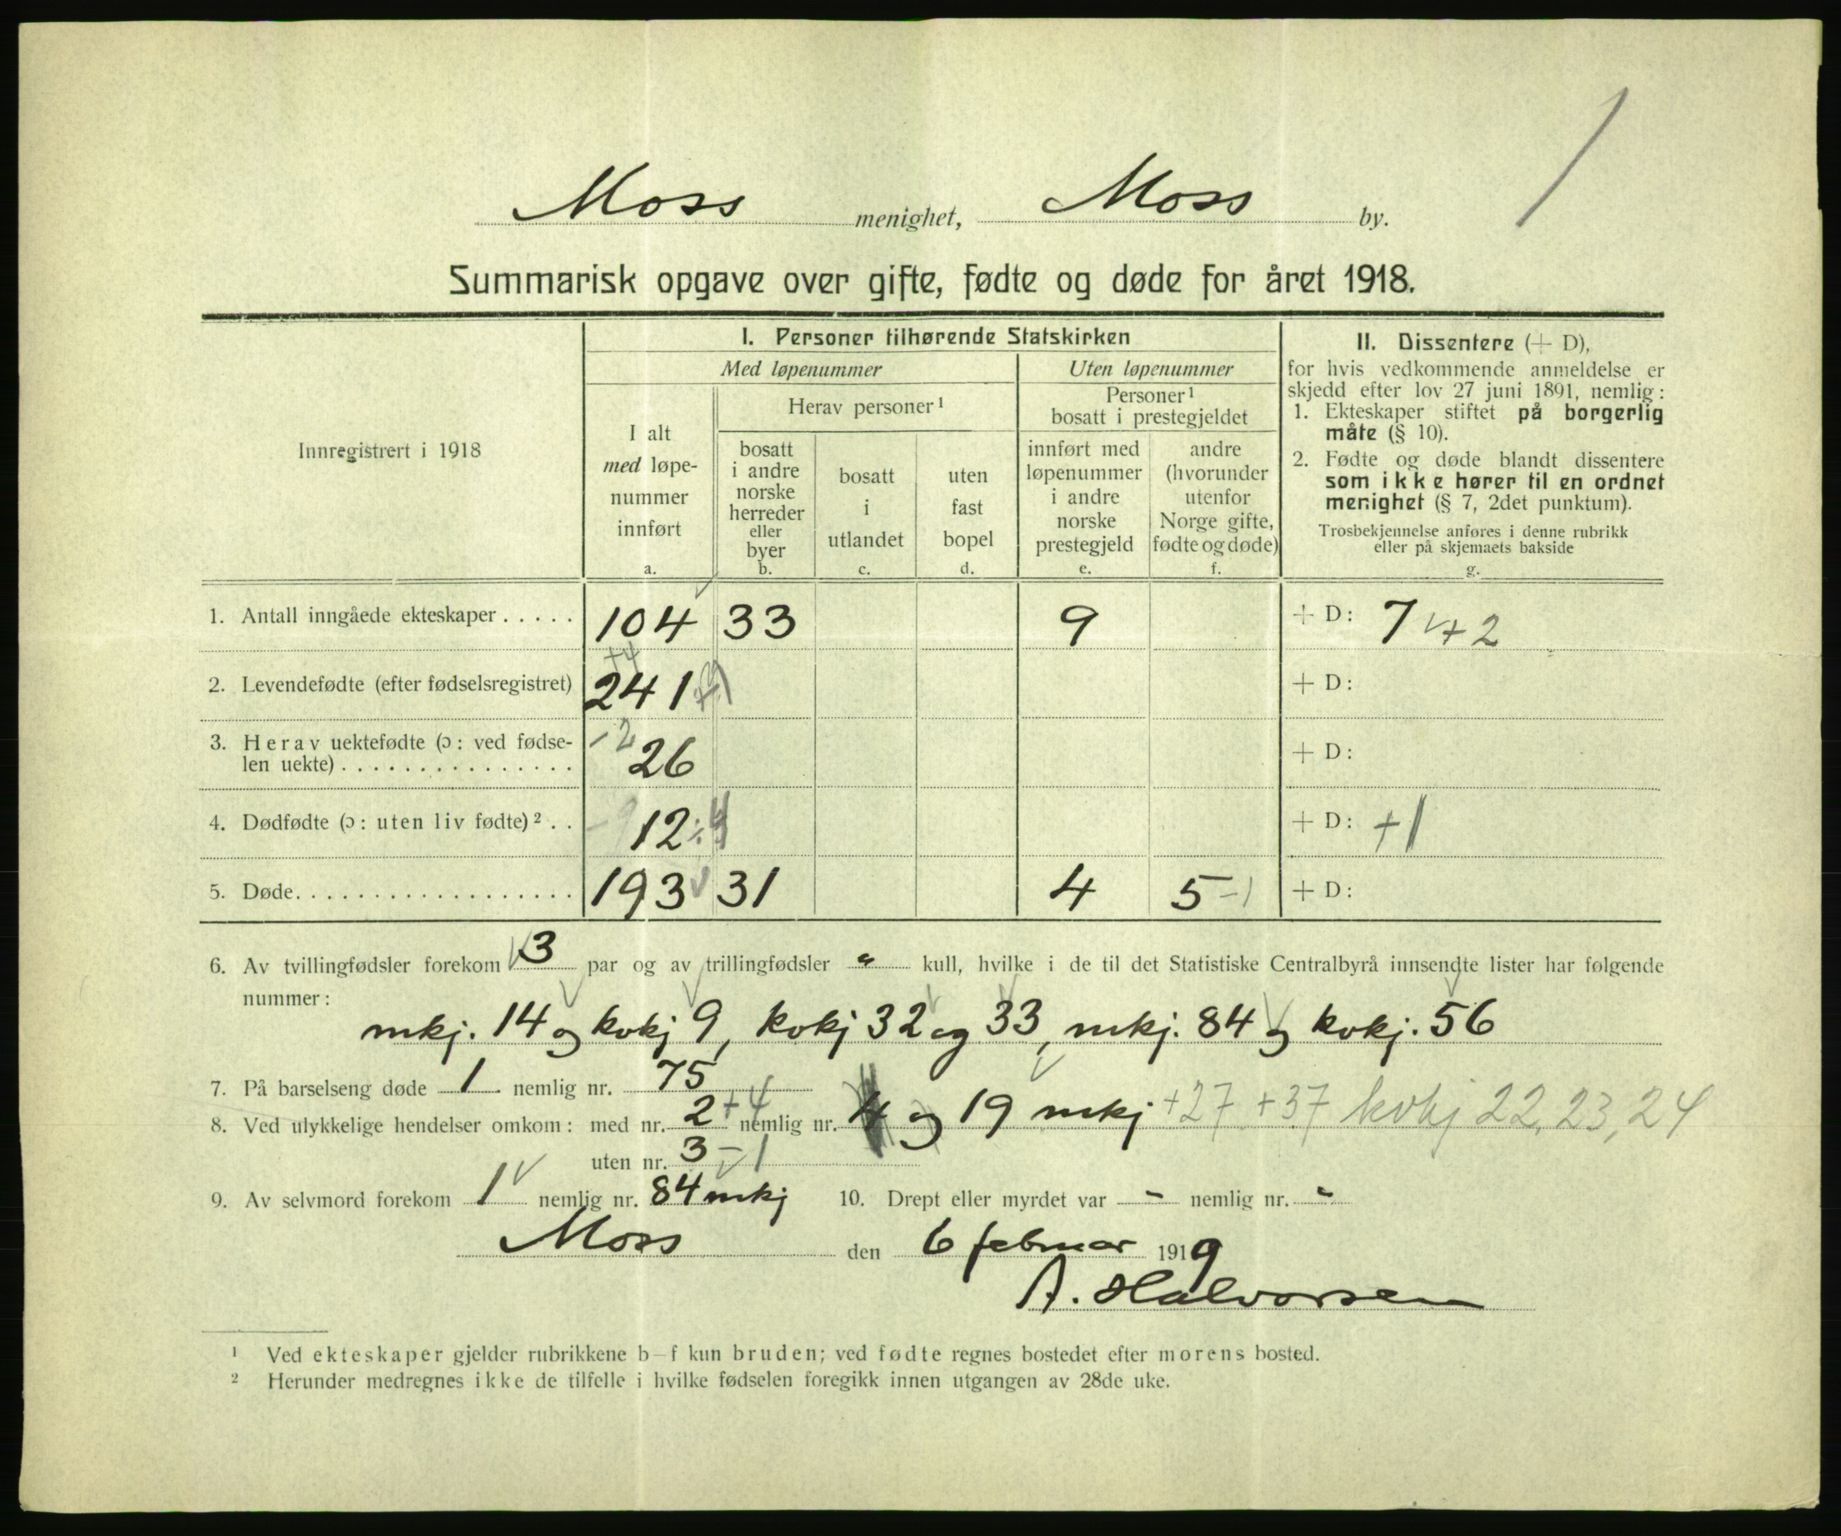 1
Moss menighet, Moss by.
Summarisk opgave over gifte, fødte og døde for året 1918.
Innregistrert i 1918
I. Personer tilhørende Statskirken
Med løpenummer
Uten løpenummer
I alt
med løpe-
nummer
innført
a.
Herav personer ¹
bosatt
i andre
norske
herreder
eller
byer
b.
bosatt
i
utlandet
c.
uten
fast
bopel
d.
Personer ¹
bosatt i prestegjeldet
innført med
løpenummer
i andre
norske
prestegjeld
e.
andre
(hvorunder
utenfor
Norge gifte,
fødte og døde)
f.
II. Dissentere (+ D),
for hvis vedkommende anmeldelse er
skjedd efter lov 27 juni 1891, nemlig:
1. Ekteskaper stiftet på borgerlig
måte (§ 10).
2. Fødte og døde blandt dissentere
som ikke hører til en ordnet
menighet (§ 7, 2det punktum).
Trosbekjennelse anføres i denne rubrikk
eller på skjemaets bakside
g.
1. Antall inngåede ekteskaper . . . . . 104 33 9 + D: 7 + 2
+4
2. Levendefødte (efter fødselsregistret) 241 + D:
3. Herav uektefødte (ɔ: ved fødse-
len uekte) . . . . . . . . . . . . . . . -2 26 + D:
4. Dødfødte (ɔ: uten liv fødte) ² . . 12 + D: +1
5. Døde. . . . . . . . . . . . . . . . . . 193 31 4 5 -1 + D:
6. Av tvillingfødsler forekom 3 par og av trillingfødsler " kull, hvilke i de til det Statistiske Centralbyrå innsendte lister har følgende
nummer:
mkj. 14 og kvkj 9, kvkj 32 og 33, mkj. 84 og kvkj. 56
7. På barselseng døde 1 nemlig nr. 75
8. Ved ulykkelige hendelser omkom: med nr. 2 +4 nemlig nr. 4 og 19 mkj +27 +37 kvkj 22, 23, 24
uten nr. 3 -1
9. Av selvmord forekom 1 nemlig nr. 84 mkj 10. Drept eller myrdet var - nemlig nr. "
Moss den 6 februar 1919
A. Halvorsen
¹ Ved ekteskaper gjelder rubrikkene b-f kun bruden; ved fødte regnes bostedet efter morens bosted.
² Herunder medregnes ikke de tilfelle i hvilke fødselen foregikk innen utgangen av 28de uke.